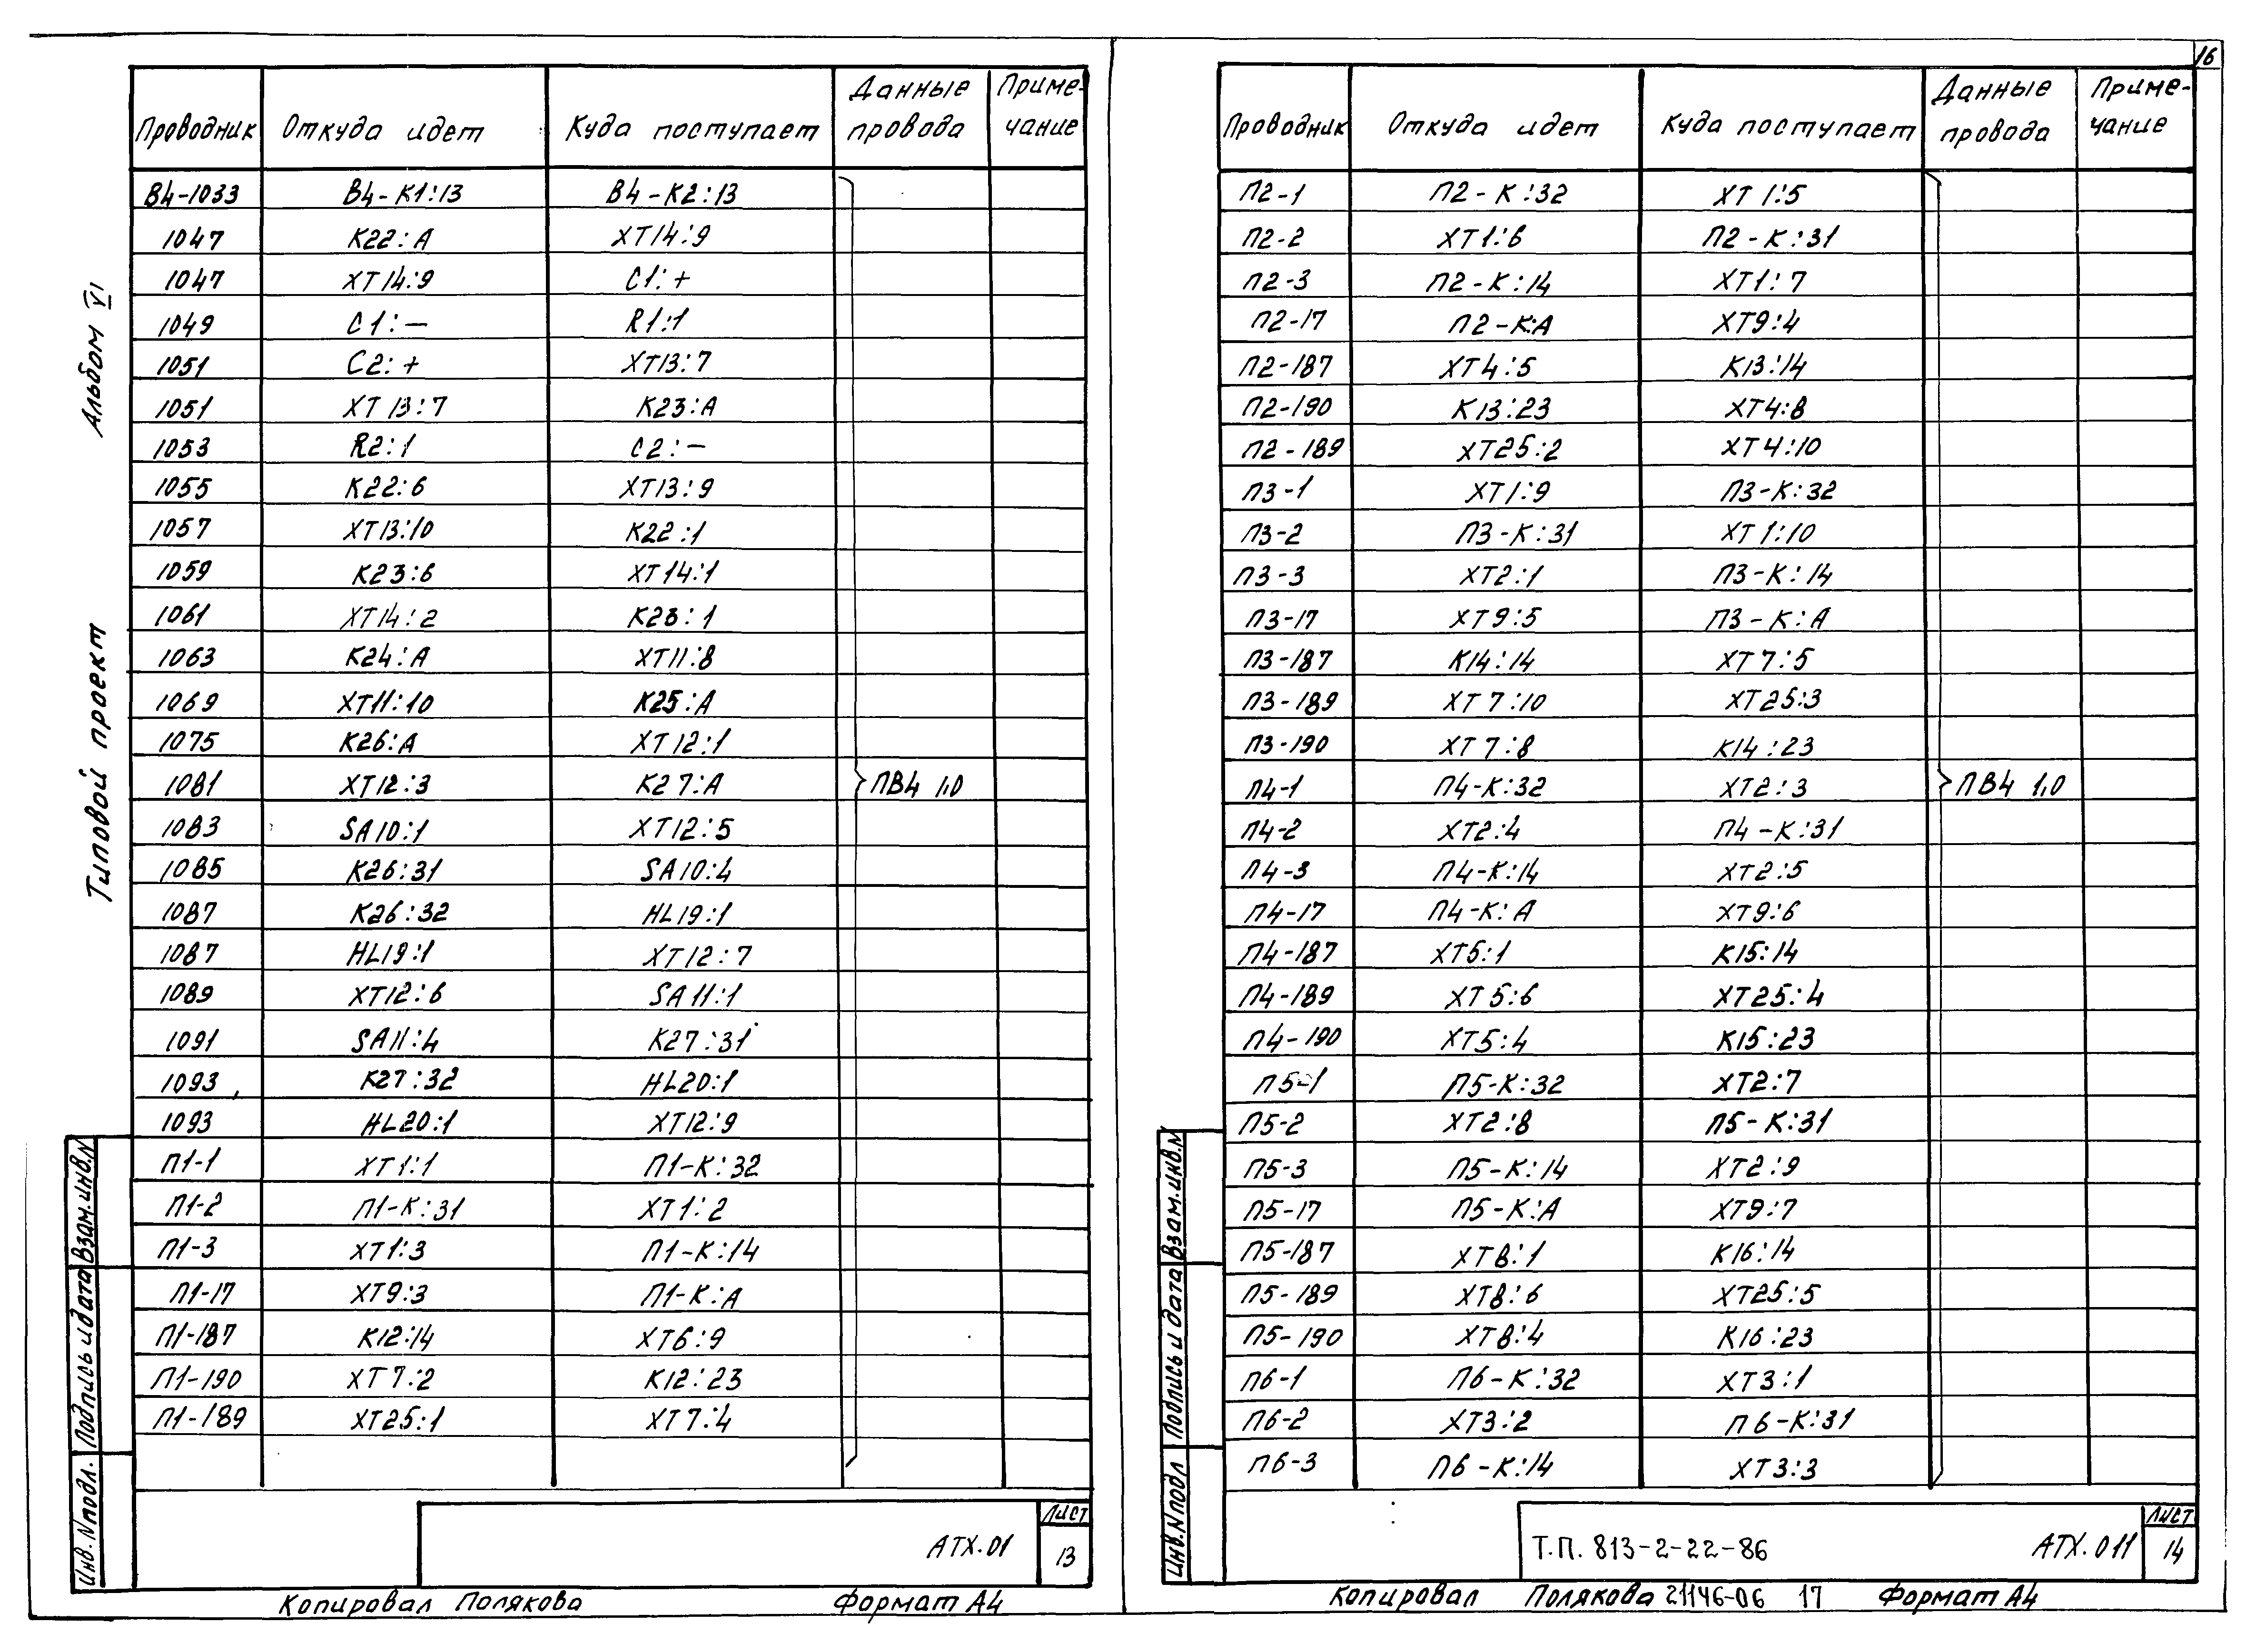 16
Альбом VI
Типовой проект
Проводник Откуда идет Куда поступает Данные провода Приме-чание
В4-1033 В4-К1:13 В4-К2:13
1047 К22:А ХТ14:9
1047 ХТ14:9 С1:+
1049 С1:— R1:1
1051 С2:+ ХТ13:7
1051 ХТ13:7 К23:А
1053 R2:1 С2:—
1055 К22:6 ХТ13:9
1057 ХТ13:10 К22:1
1059 К23:6 ХТ14:1
1061 ХТ14:2 К23:1
1063 К24:А ХТ11:8
1069 ХТ11:10 К25:А
1075 К26:А ХТ12:1
1081 ХТ12:3 К27:А ПВ4 1,0
1083 SA10:1 ХТ12:5
1085 К26:31 SA10:4
1087 К26:32 HL19:1
1087 HL19:1 ХТ12:7
1089 ХТ12:6 SA11:1
1091 SA11:4 К27:31
1093 К27:32 HL20:1
1093 HL20:1 ХТ12:9
П1-1 ХТ1:1 П1-К:32
П1-2 П1-К:31 ХТ1:2
П1-3 ХТ1:3 П1-К:14
П1-17 ХТ9:3 П1-К:А
П1-187 К12:14 ХТ6:9
П1-190 ХТ7:2 К12:23
П1-189 ХТ25:1 ХТ7:4
Взам.инв.N
Подпись и дата
Инв.Nподл.
АТХ.01
Лист
13
Копировал Полякова Формат А4
Проводник Откуда идет Куда поступает Данные провода Приме-чание
П2-1 П2-К:32 ХТ1:5
П2-2 ХТ1:6 П2-К:31
П2-3 П2-К:14 ХТ1:7
П2-17 П2-К:А ХТ9:4
П2-187 ХТ4:5 К13:14
П2-190 К13:23 ХТ4:8
П2-189 ХТ25:2 ХТ4:10
П3-1 ХТ1:9 П3-К:32
П3-2 П3-К:31 ХТ1:10
П3-3 ХТ2:1 П3-К:14
П3-17 ХТ9:5 П3-К:А
П3-187 К14:14 ХТ7:5
П3-189 ХТ7:10 ХТ25:3
П3-190 ХТ7:8 К14:23
П4-1 П4-К:32 ХТ2:3 ПВ4 1,0
П4-2 ХТ2:4 П4-К:31
П4-3 П4-К:14 ХТ2:5
П4-17 П4-К:А ХТ9:6
П4-187 ХТ5:1 К15:14
П4-189 ХТ5:6 ХТ25:4
П4-190 ХТ5:4 К15:23
П5-1 П5-К:32 ХТ2:7
П5-2 ХТ2:8 П5-К:31
П5-3 П5-К:14 ХТ2:9
П5-17 П5-К:А ХТ9:7
П5-187 ХТ8:1 К16:14
П5-189 ХТ8:6 ХТ25:5
П5-190 ХТ8:4 К16:23
П6-1 П6-К:32 ХТ3:1
П6-2 ХТ3:2 П6-К:31
П6-3 П6-К:14 ХТ3:3
Взам.инв.N
Подпись и дата
Инв.Nподл
Т.П. 813-2-22-86 АТХ.011
Лист
14
Копировал Полякова 21146-06 17 Формат А4